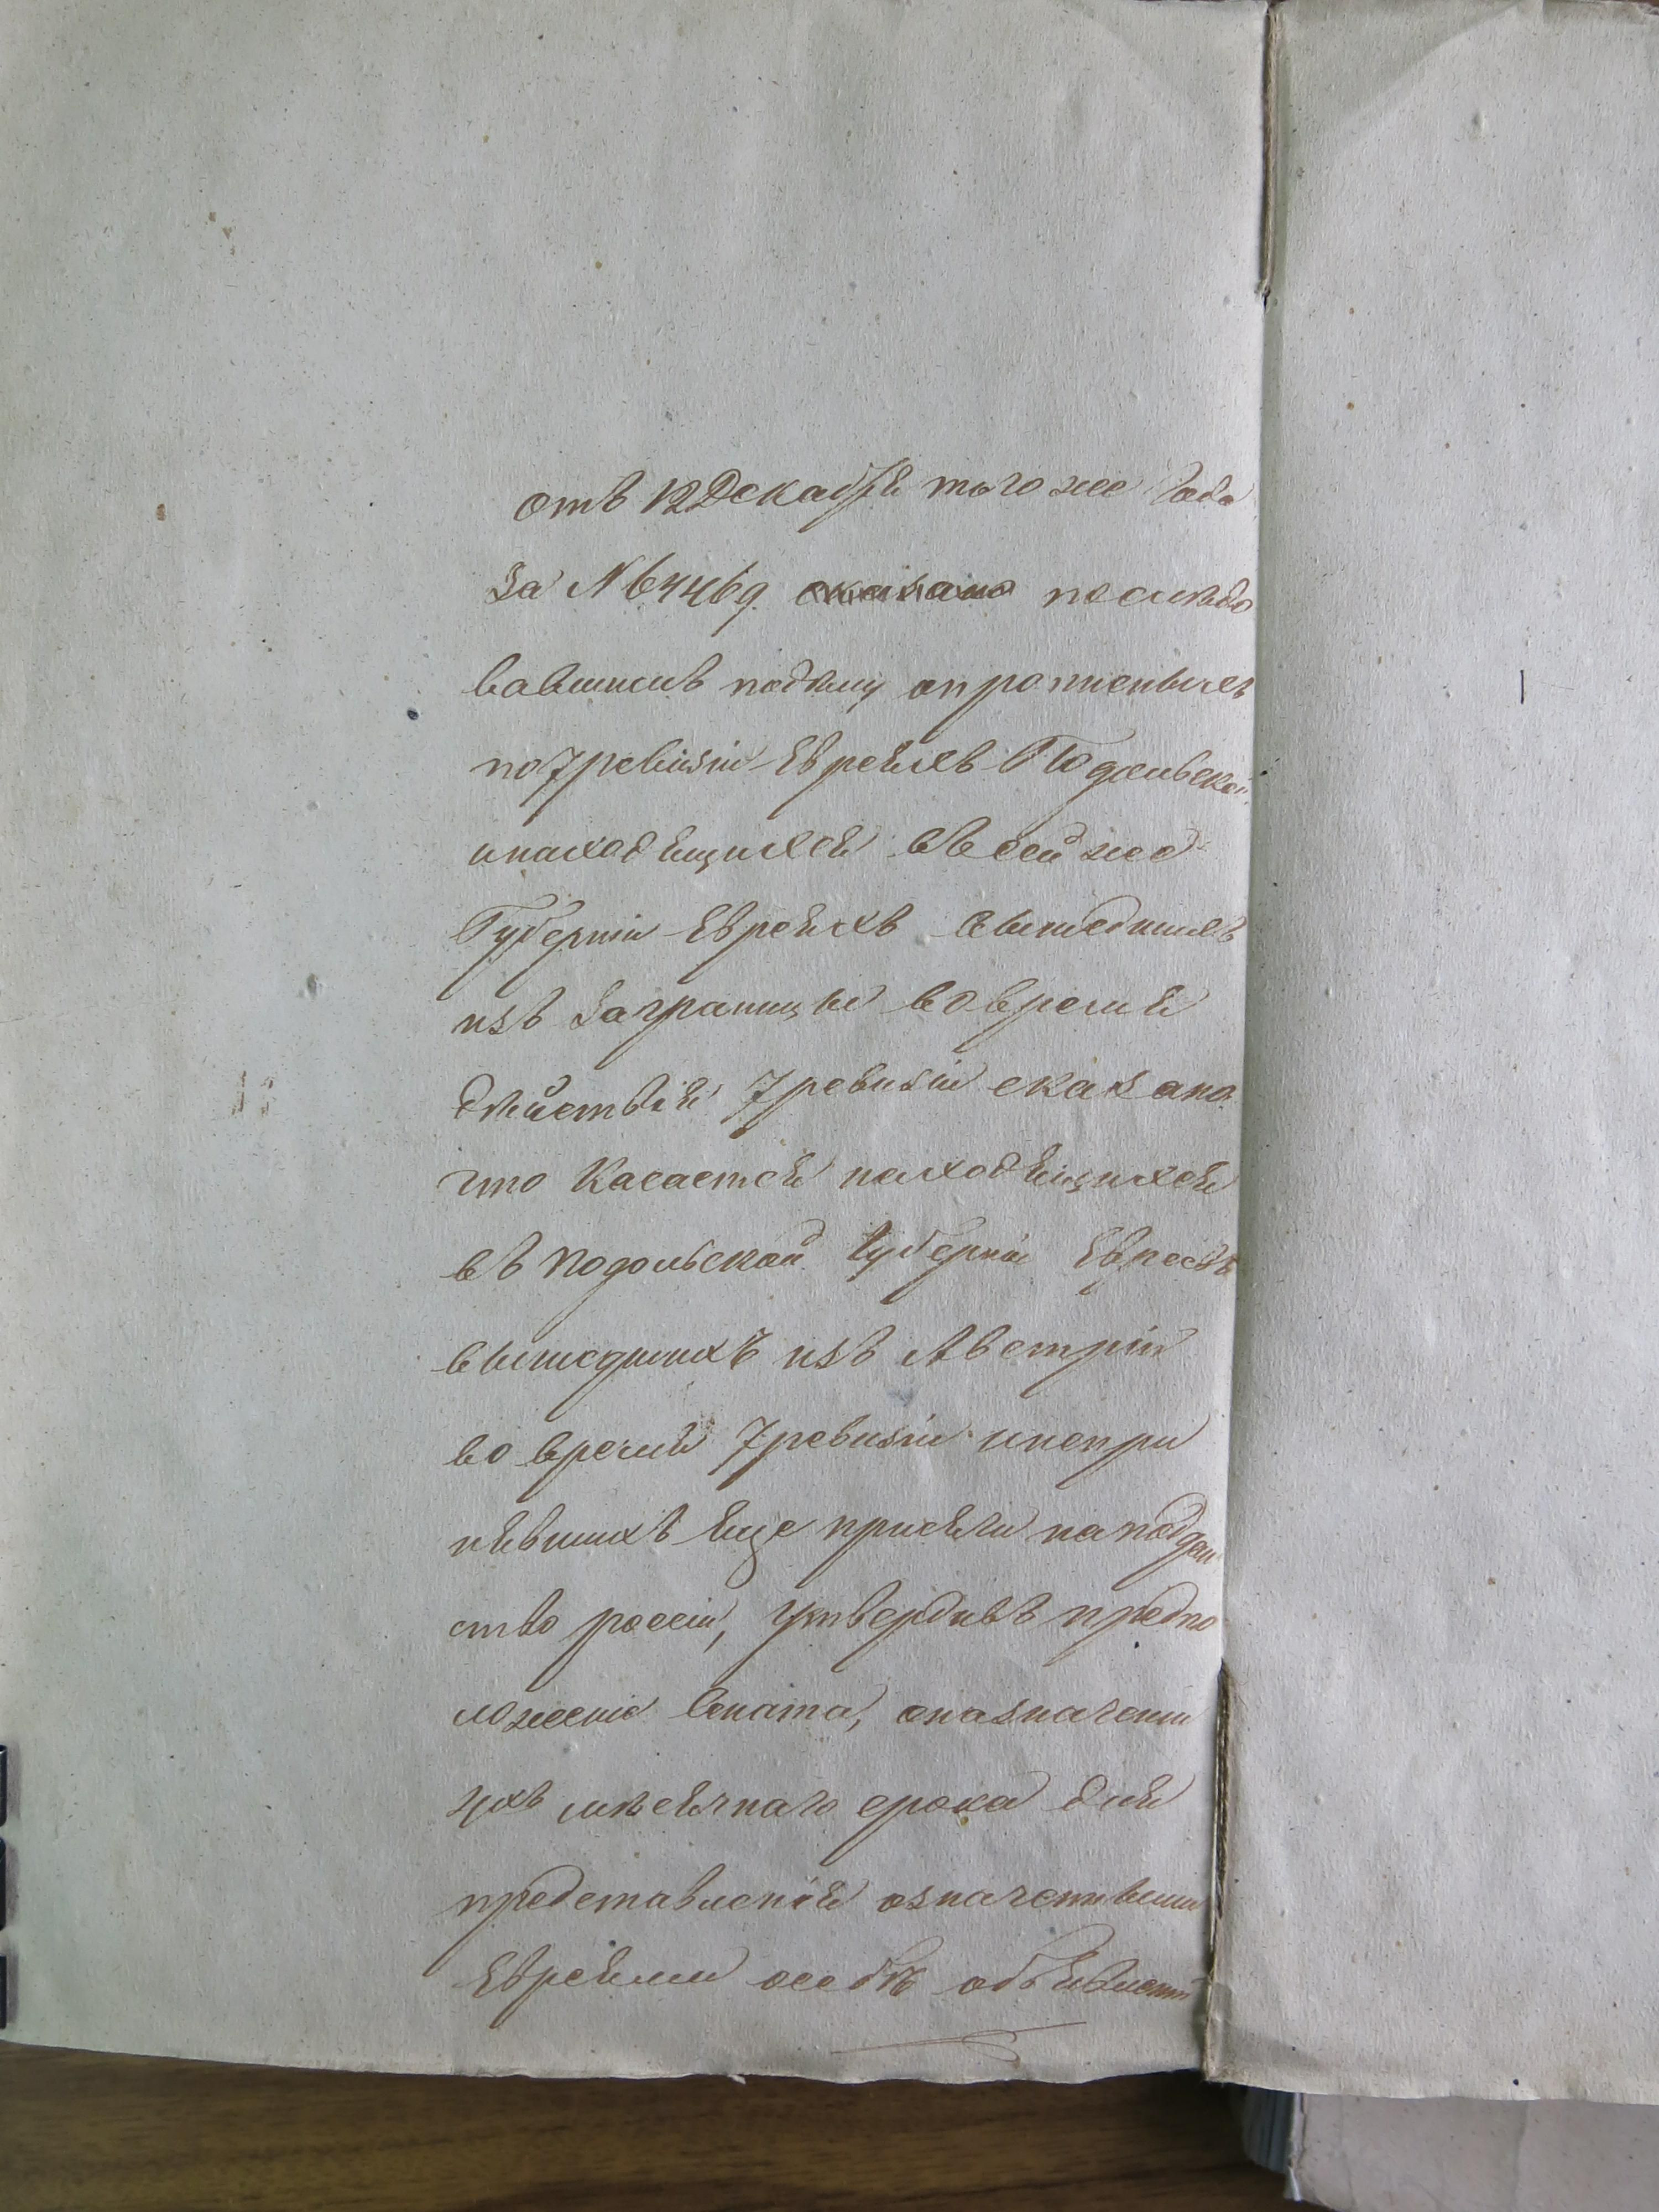 отъ 12 Декабря того же года
за № 64469. сказано последо
вавшимъ подѣлу опропиеныхъ
по 7 ревизіи Евреяхъ Подольской
инаходящихся въ сей же
Губерніи Евреяхъ вышедшихъ
изъ заграницы вовремя
дѣйствія 7 ревизіи сказано
что касается находящихся
въ подольской губерніи Евреевъ
вышедшихъ изъ Австріи
во время 7 ревизіи инепри
нявшихъ еще присяги наподдан
ство россіи, утвердивъ предпо
ложеніе Сената, оназначеніи
ихъ мѣсячнаго срока для
представленія означенными
Евреями осебѣ объявленій